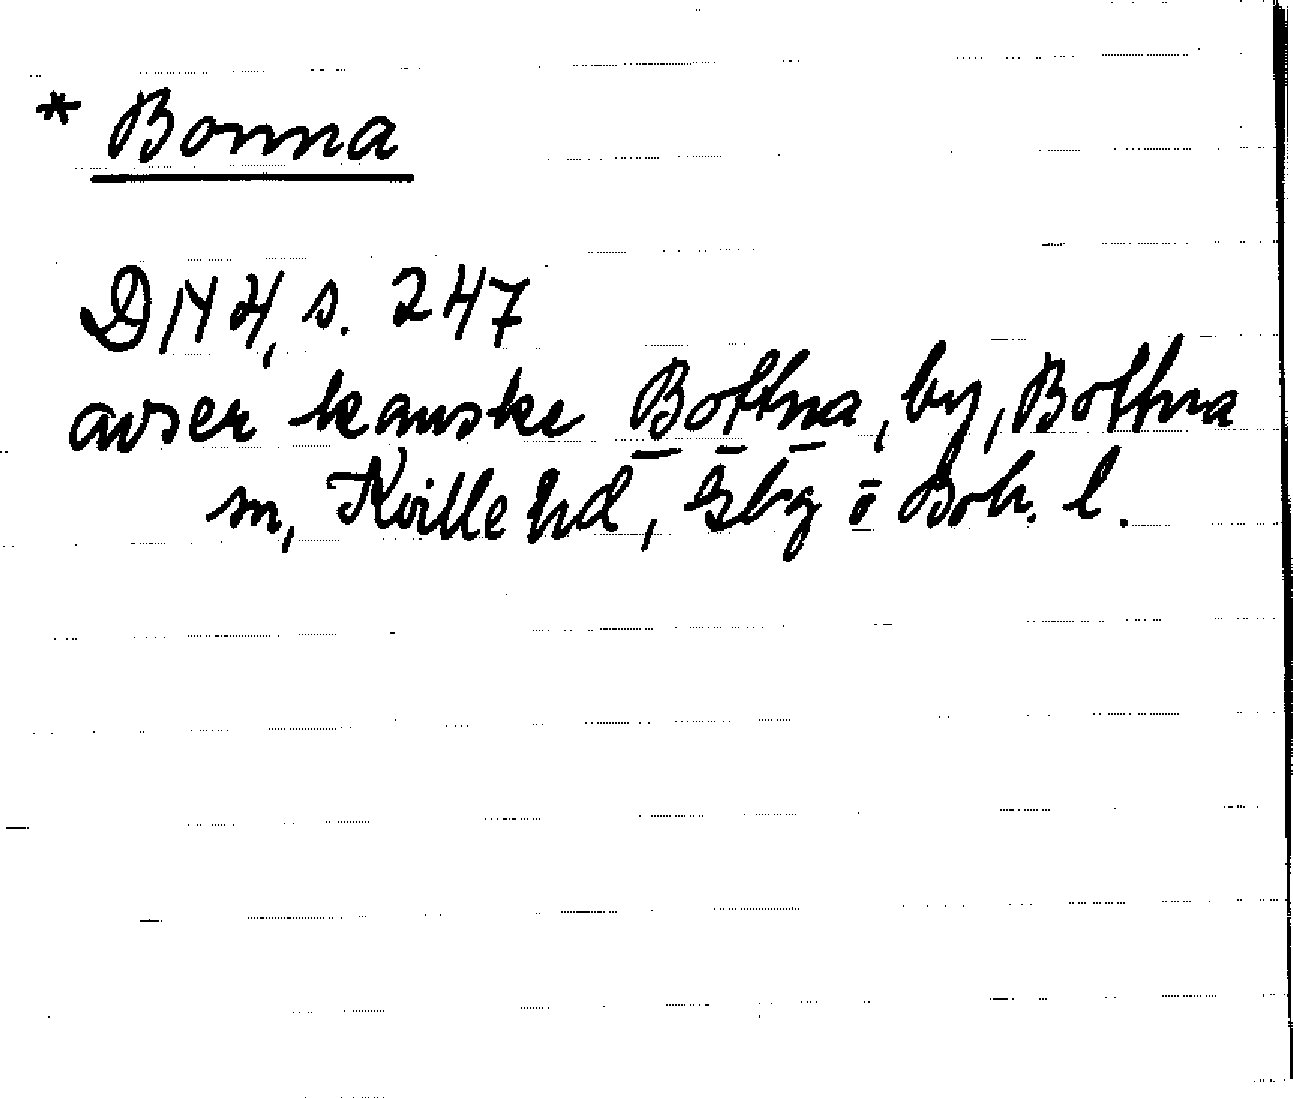 * Bonna
DN 4, s. 247
avser kanske Bottna, by, Bottna
sn, Kville hd, Gbg o Boh. l.